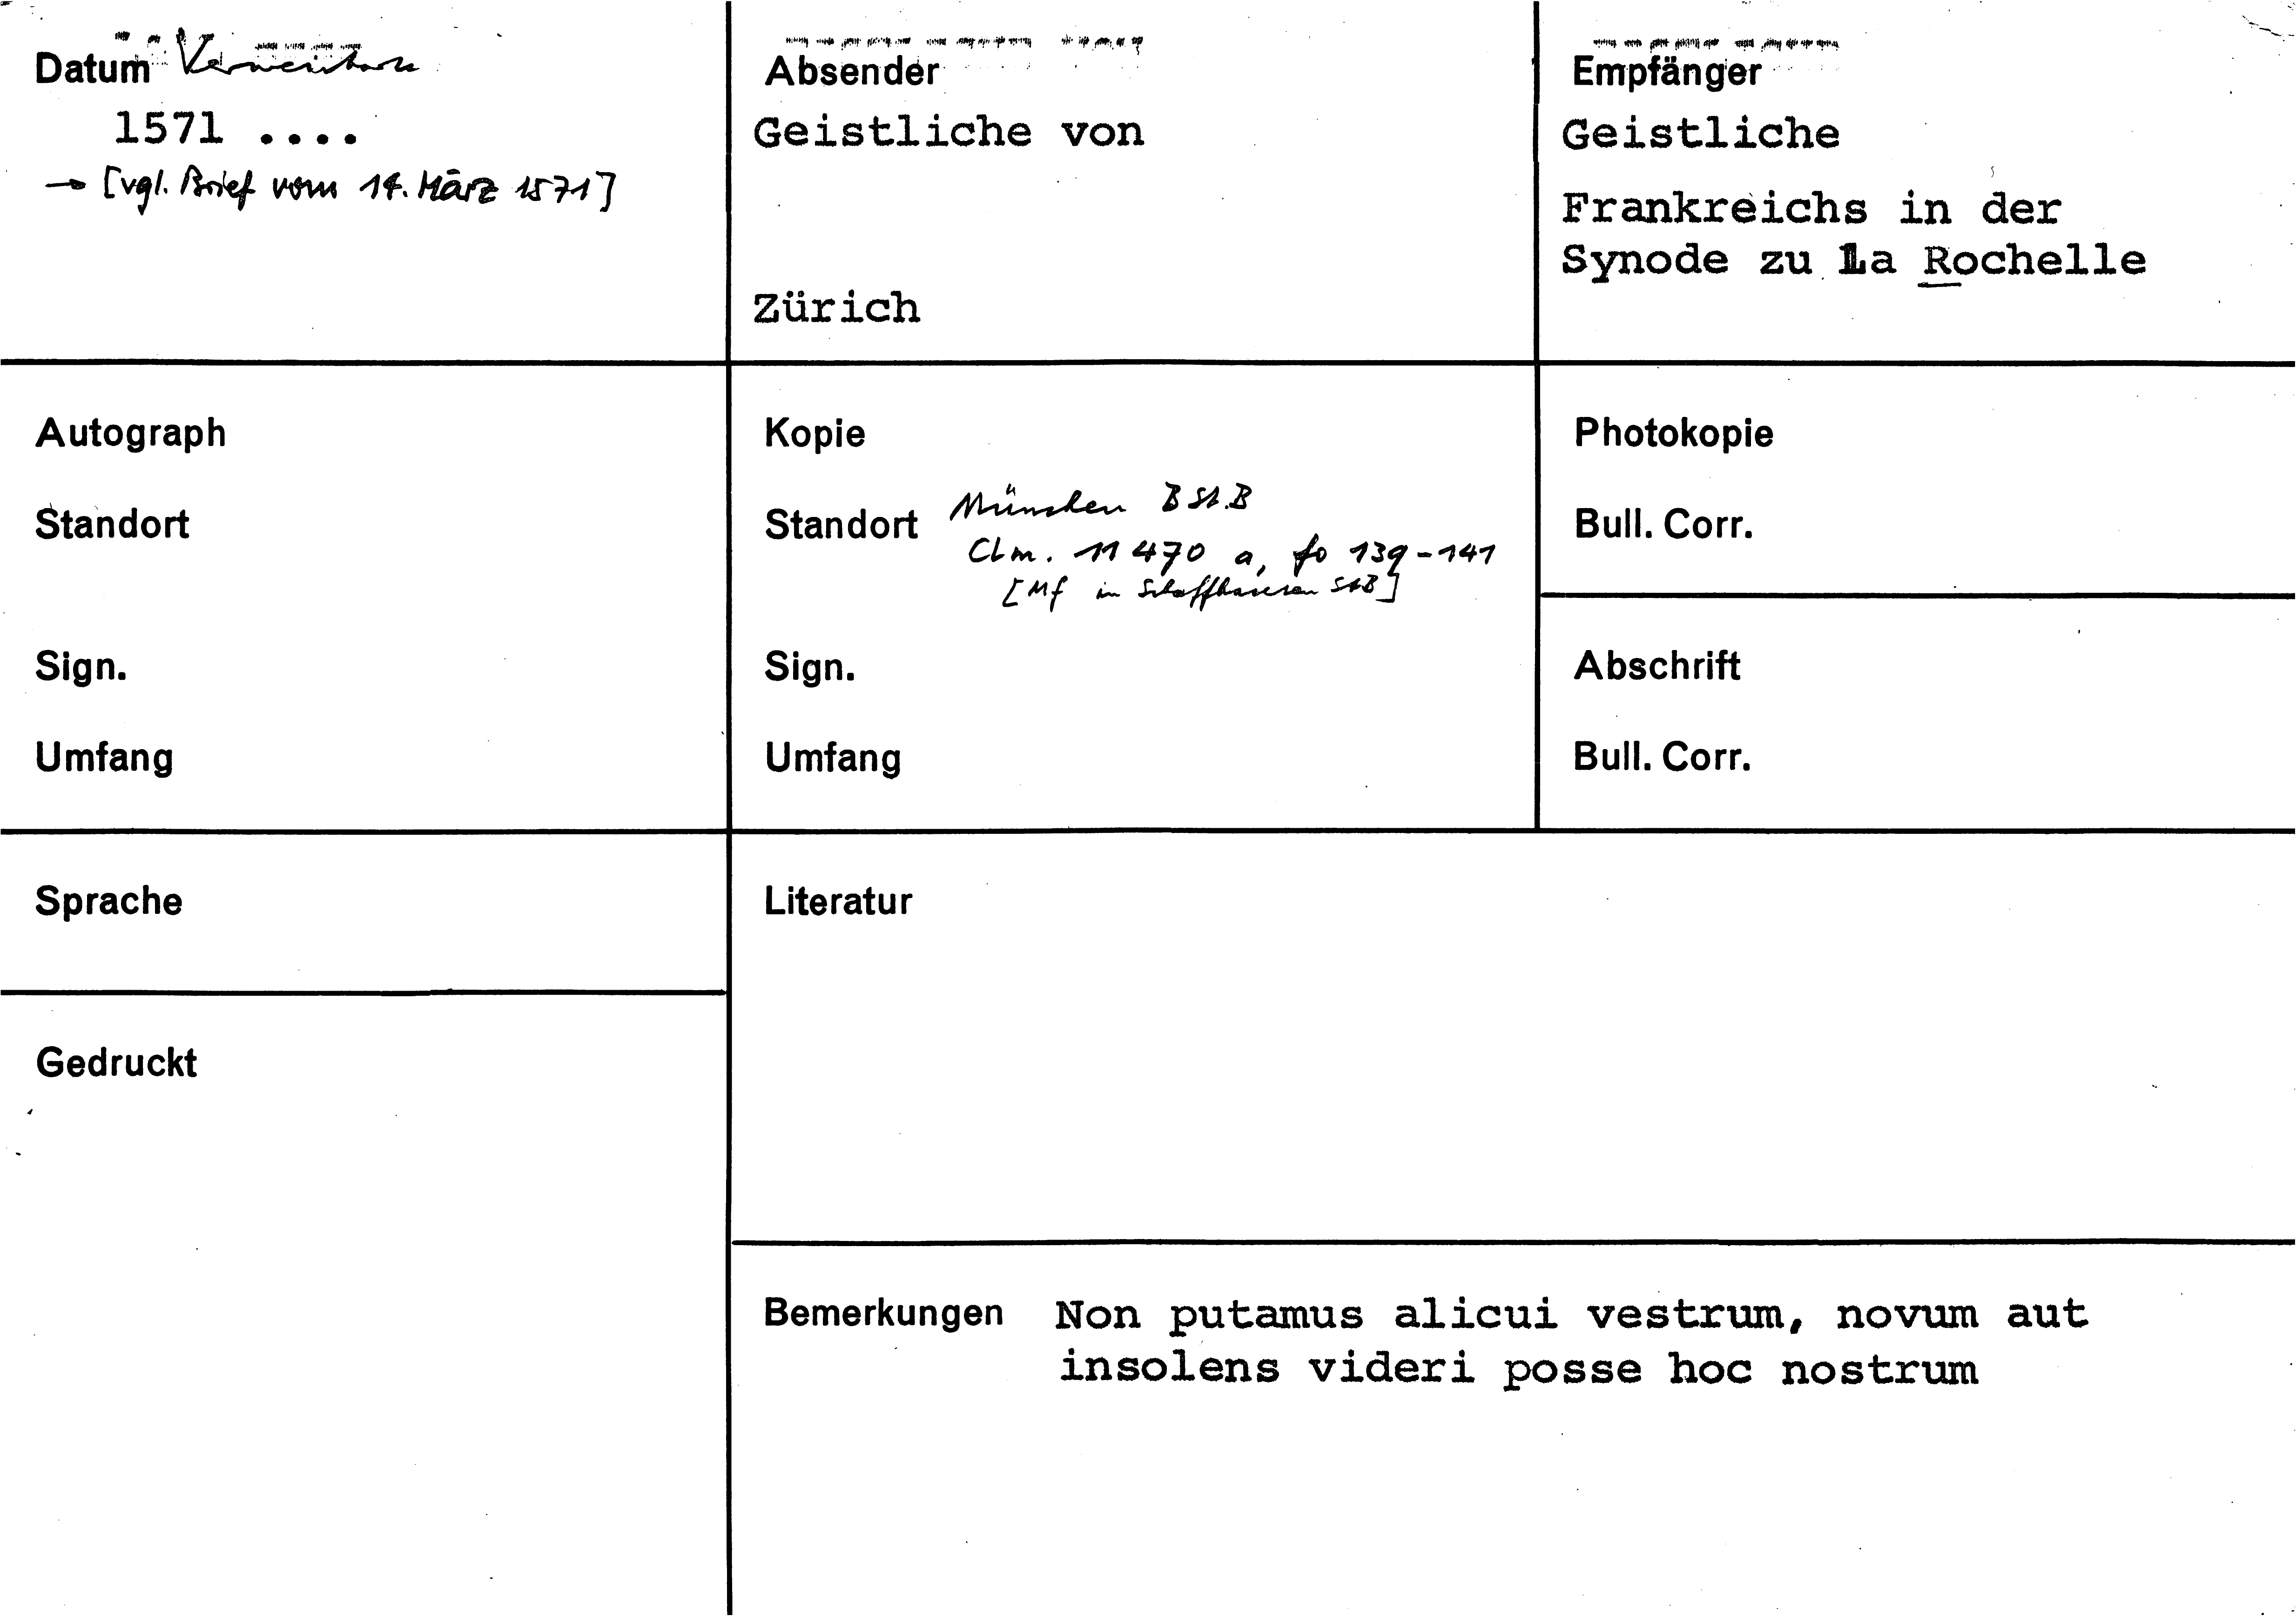 Datum Verweiskarte
1571 ....
→ [vgl. Brief vom 14. März 1571]
Absender
Geistliche von
Zürich
Empfänger
Geistliche
Frankreichs in der
Synode zu La Rochelle
Autograph
Standort
Sign.
Umfang
Kopie
Standort München B St.B
Clm. 11 470 a, fo 139-141
[Mf in Schaffhausen StB]
Sign.
Umfang
Photokopie
Bull. Corr.
Abschrift
Bull. Corr.
Sprache
Gedruckt
Literatur
Bemerkungen Non putamus alicui vestrum, novum aut
insolens videri posse hoc nostrum